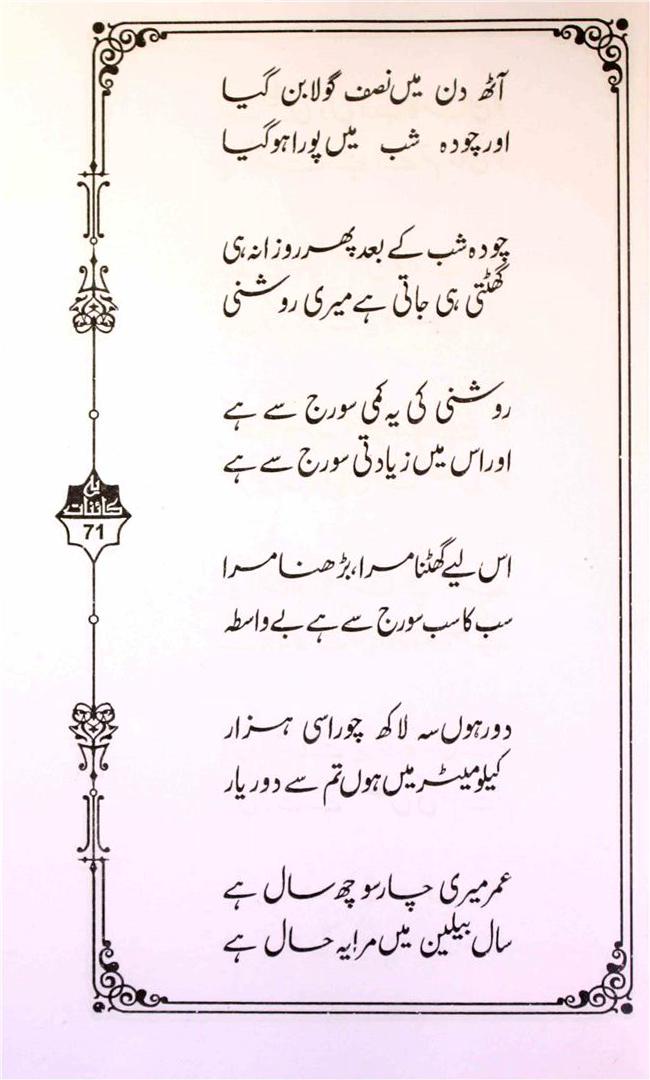 آٹھ دن میں نصف گولا بن گیا
اور چودہ شب میں پورا ہوگیا
چودہ شب کے بعد پھر روزانہ ہی
گھٹتی ہی جاتی ہے میری روشنی
روشنی کی یہ کمی سورج سے ہے
اور اس میں زیادتی سورج سے ہے
اس لیے گھٹنا مرا، بڑھنا مرا
سب کا سب سورج سے ہے بے واسطہ
دور ہوں سہ لاکھ چوراسی ہزار
کیلومیٹر میں ہوں تم سے دور یار
عمر میری چار سو چھ سال ہے
سال بیلین میں مرا یہ حال ہے
یہ
کائنات
71